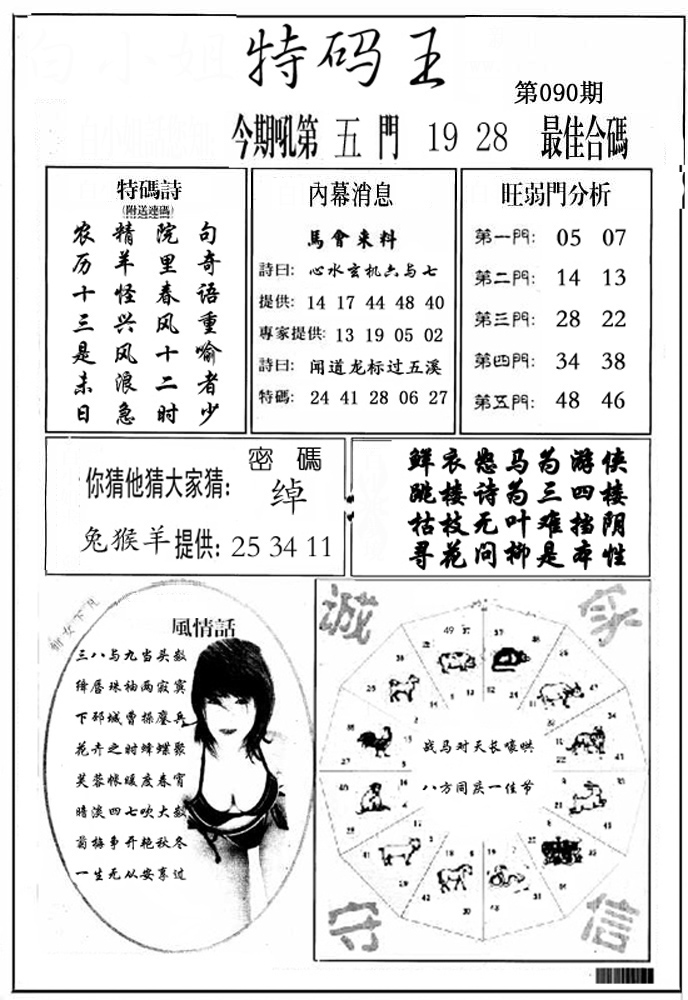 特码王
第090期
今期吼第 五 門 19 28 最佳合碼
特碼詩
(附送連碼)
农历十三是未日
精羊怪兴风浪急
院里春风十二时
句奇语重喻者少
內幕消息
馬會来料
詩曰: 心水玄机六与七
提供: 14 17 44 48 40
專家提供: 13 19 05 02
詩曰: 闻道龙标过五溪
特碼: 24 41 28 06 27
旺弱門分析
第一門: 05 07
第二門: 14 13
第三門: 28 22
第四門: 34 38
第五門: 48 46
密 碼
你猜他猜大家猜: 绰
兔猴羊提供: 25 34 11
鲜衣怒马为游侠
跳楼诗为三四楼
枯枝无叶难挡阴
寻花问柳是本性
風情話
三八与九当头数
绛唇珠袖两寂寞
下邳城曹操麈兵
花卉之时蜂蝶聚
芙蓉帐暖度春宵
暗淡四七吹大数
菊梅争开艳秋冬
一生无从安享过
诚
家
战马对天长嚎哄
八方同庆一佳节
守
信